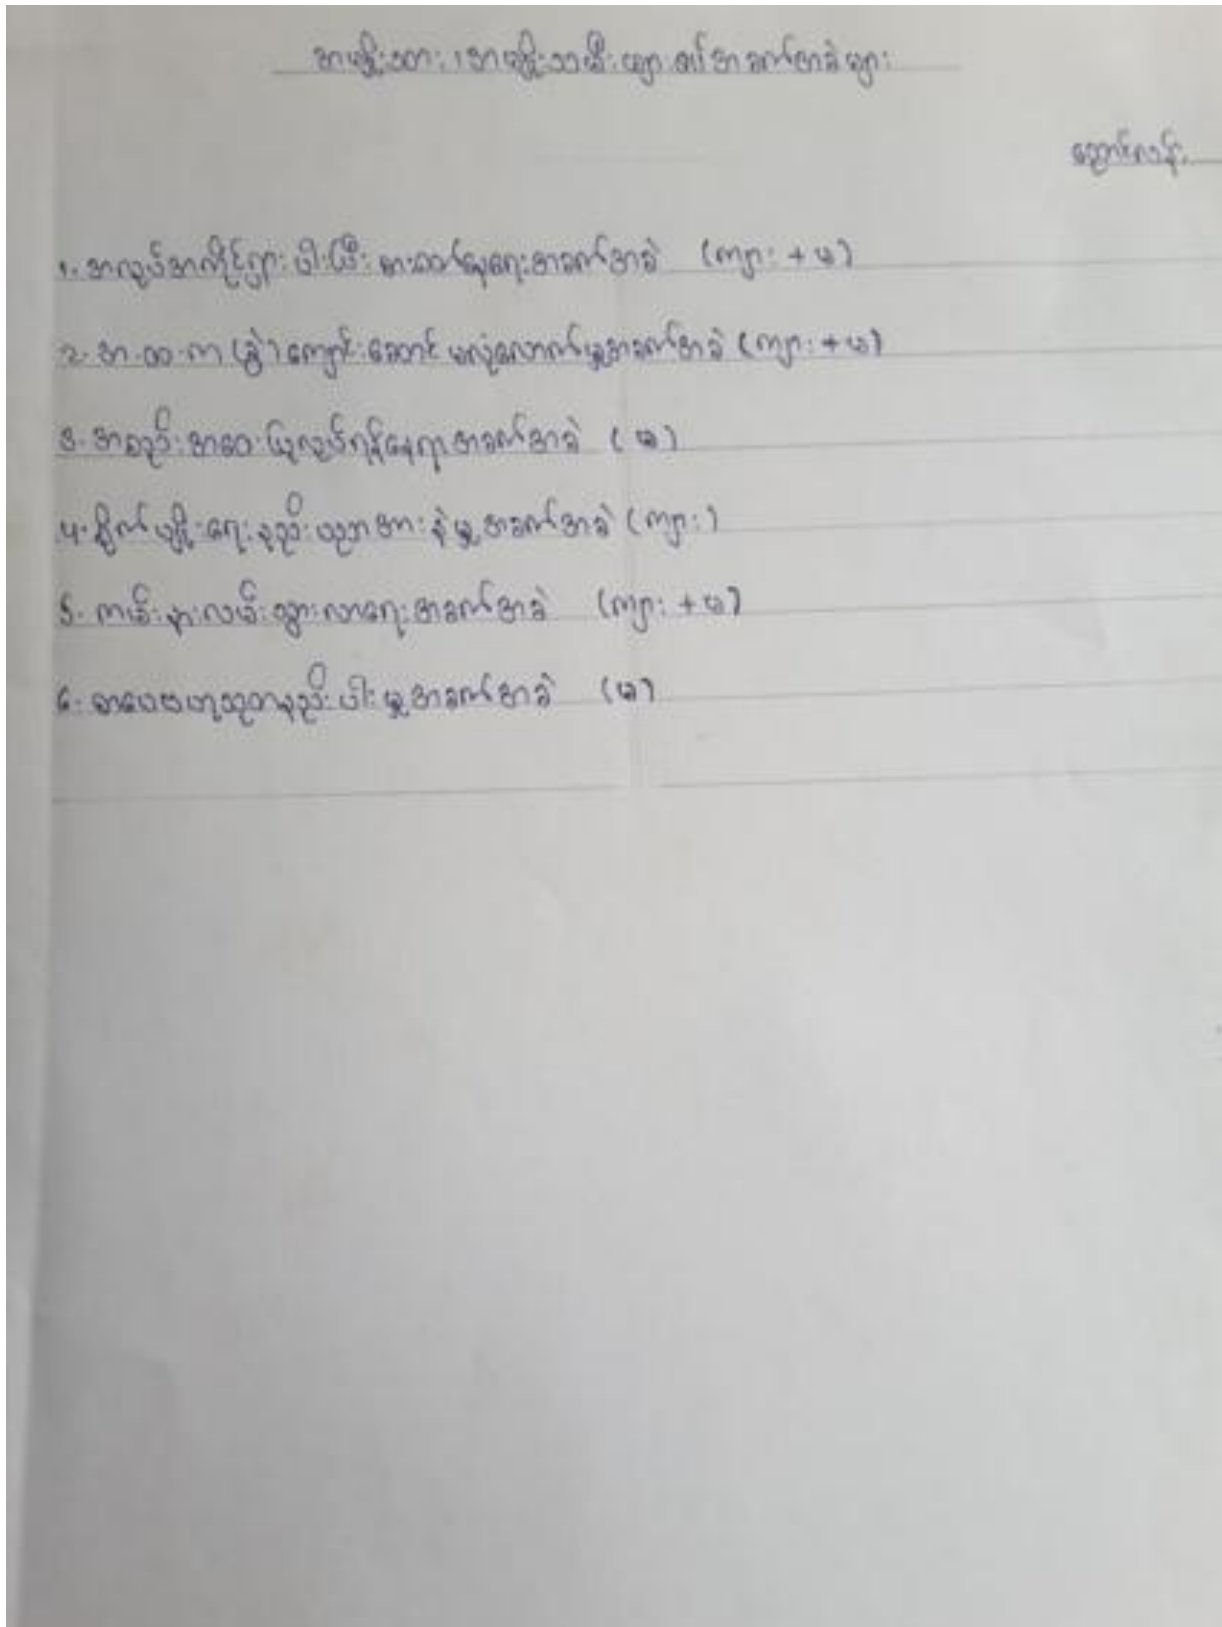 အမျိုးသား၊အမျိုးသမီးများ၏အခက်အခဲများ
ညောင်လန့်
၁. အလုပ်အကိုင်ရှားပါးပြီး စားဝတ်နေရေးအခက်အခဲ (ကျား + မ)
၂. အ.ထ.က (ခွဲ) ကျောင်းဆောင် မလုံလောက်မှုအခက်အခဲ (ကျား + မ)
၃. အစည်းအဝေးပြုလုပ်ရန်နေရာအခက်အခဲ ( မ )
၄. စိုက်ပျိုးရေးနည်းပညာအားနဲမှုအခက်အခဲ (ကျား)
၅. ကမ်းနားလမ်းသွားလာရေးအခက်အခဲ (ကျား + မ)
၆. စာပေဗဟုသုတနည်းပါးမှုအခက်အခဲ (မ)